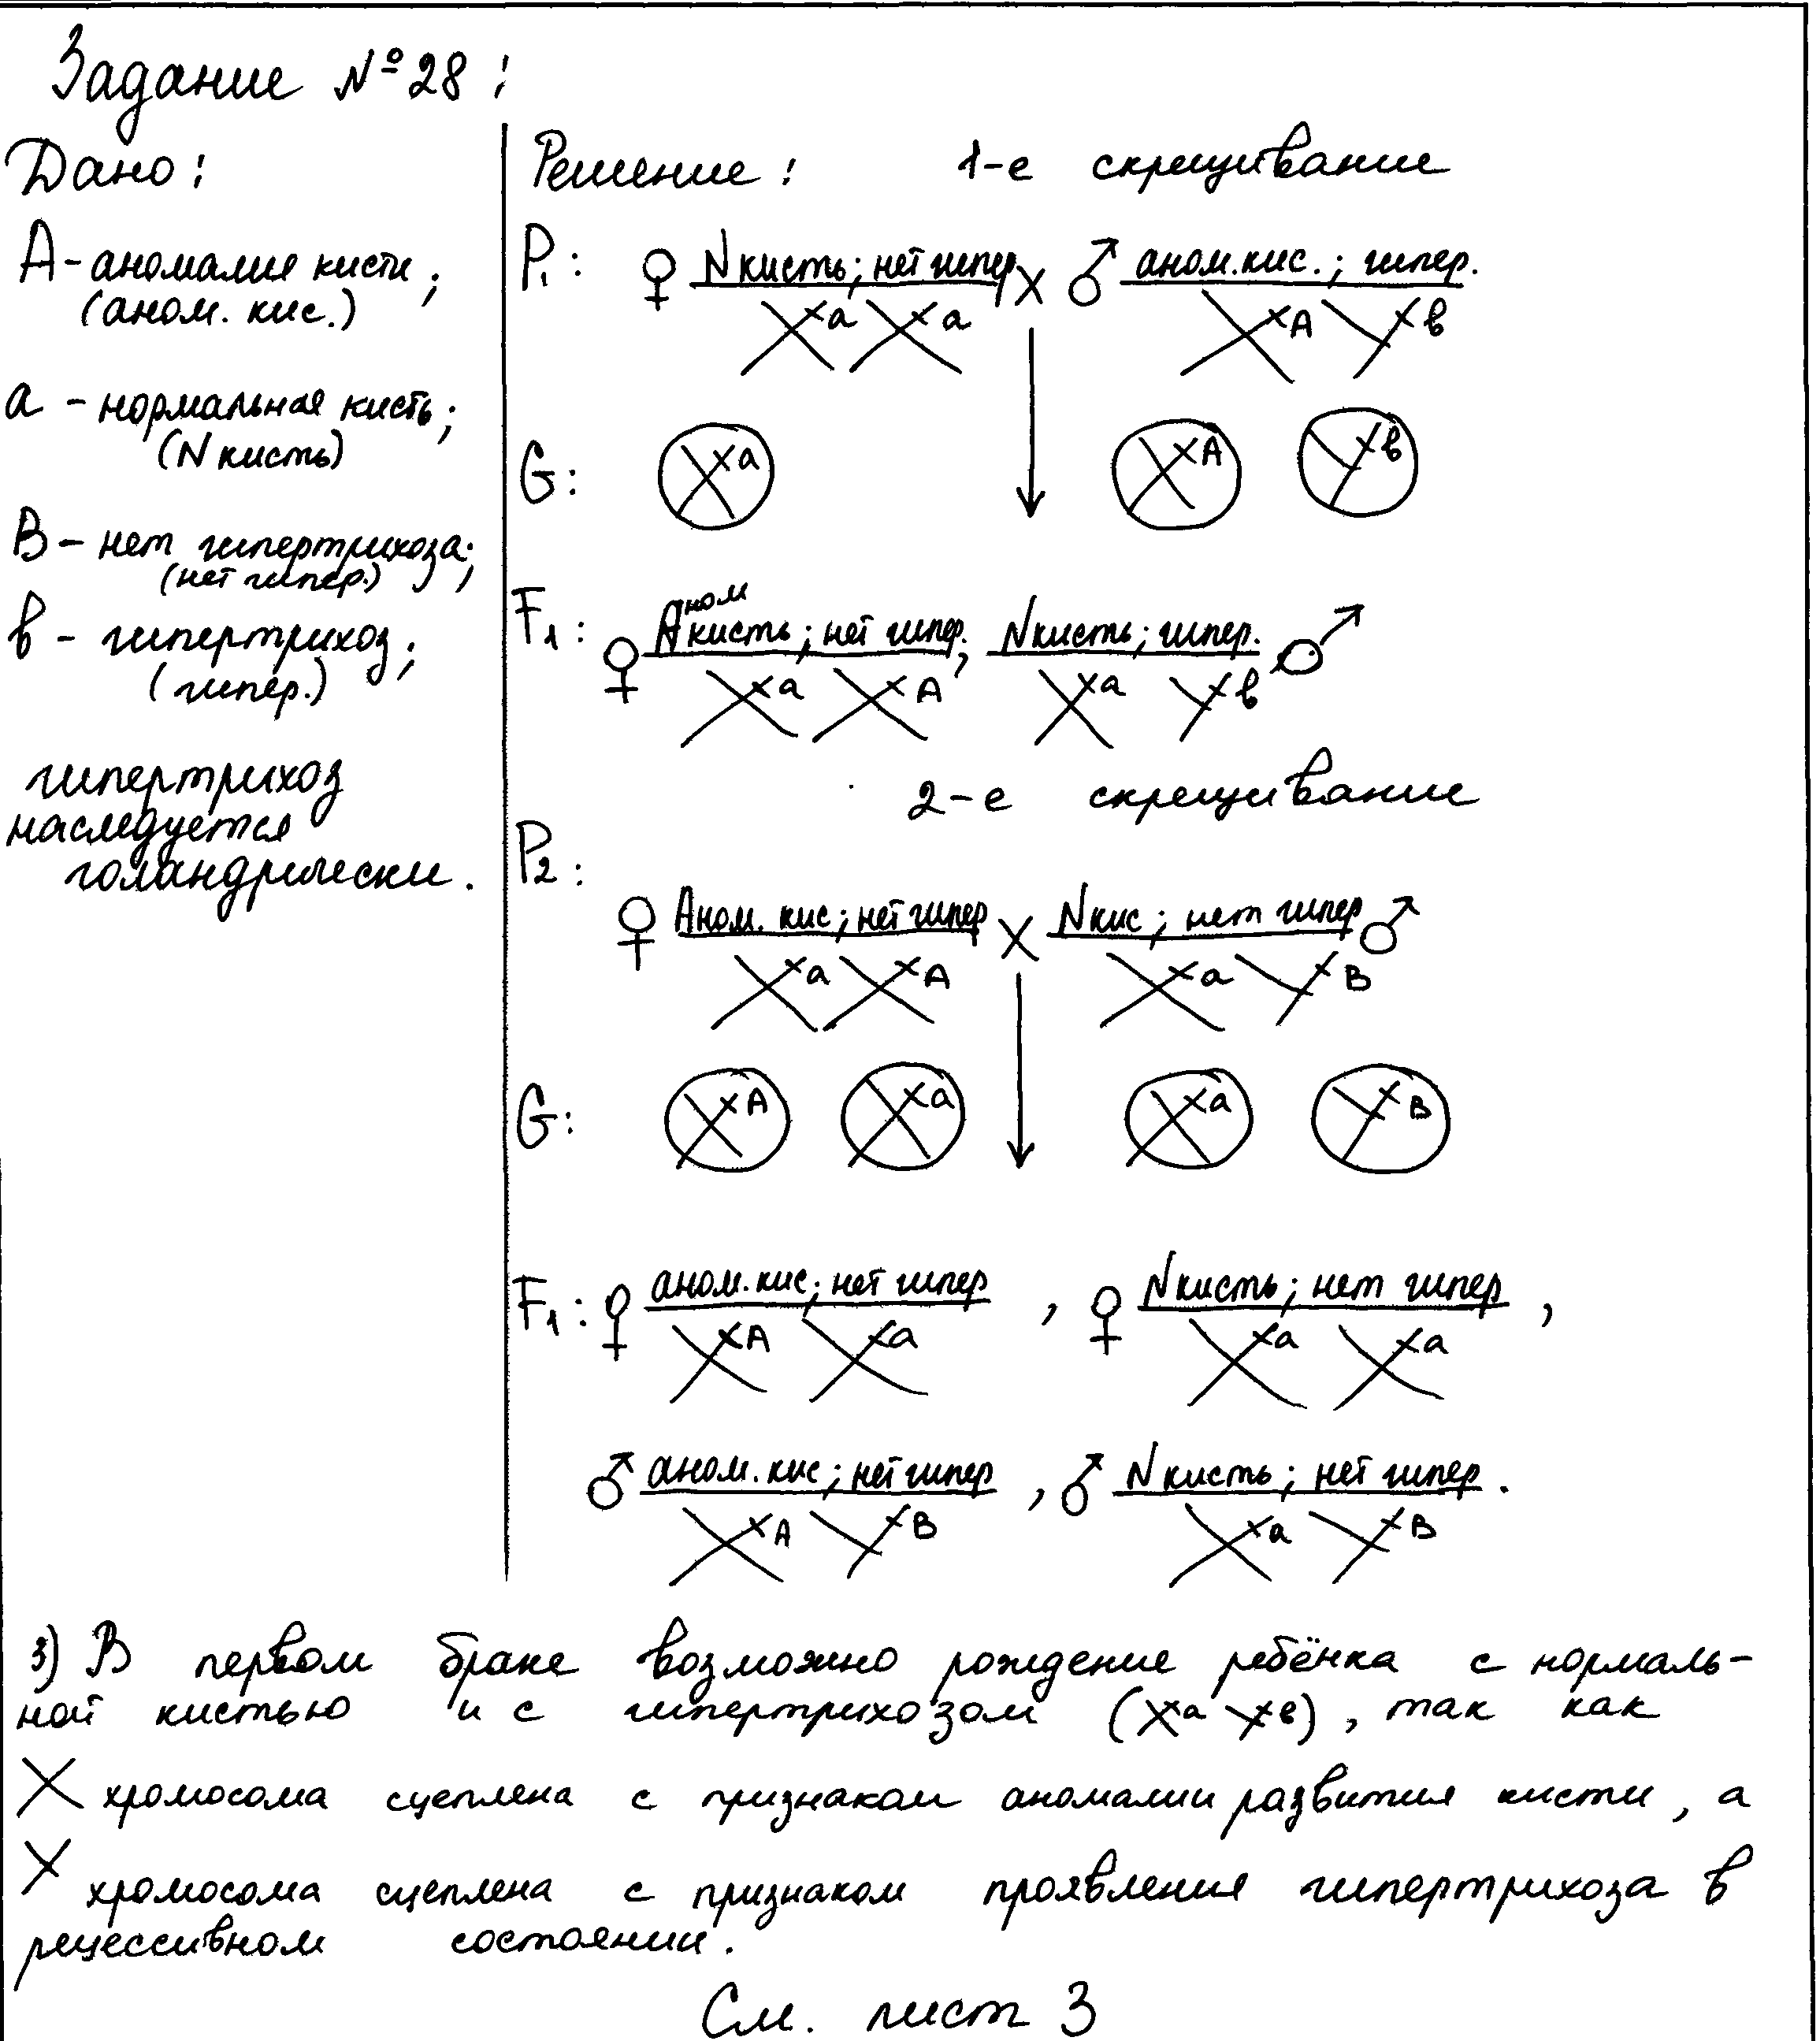 Задание №28:
Дано:
А - аномалия кисти;
(аном. кис.)
а - нормальная кисть;
(N кисть)
В - нет гипертрихоза;
(нет гипер.)
в - гипертрихоз;
(гипер.)
гипертрихоз
наследуется
голандрически.
Решение: 1-е скрещивание
P₁: ♀ N кисть; нет гипер × ♂ аном. кис.; гипер.
XᵃXᵃ XᴬYᵇ
G: Xᵃ Xᴬ Yᵇ
F₁: ♀ Аном кисть; нет гипер., N кисть; гипер. ♂
XᵃXᴬ XᵃYᵇ
2-е скрещивание
P₂:
♀ Аном. кис; нет гипер × N кис; нет гипер ♂
XᵃXᴬ XᵃYᴮ
G: Xᴬ Xᵃ Xᵃ Yᴮ
F₁: ♀ аном. кис; нет гипер , ♀ N кисть; нет гипер ,
XᴬXᵃ XᵃXᵃ
♂ аном. кис; нет гипер , ♂ N кисть; нет гипер .
XᴬYᴮ XᵃYᴮ
3) В первом браке возможно рождение ребёнка с нормаль-
ной кистью и с гипертрихозом (XᵃYᵇ), так как
X хромосома сцеплена с признаком аномалии развития кисти, а
Y хромосома сцеплена с признаком проявления гипертрихоза в
рецессивном состоянии.
См. лист 3